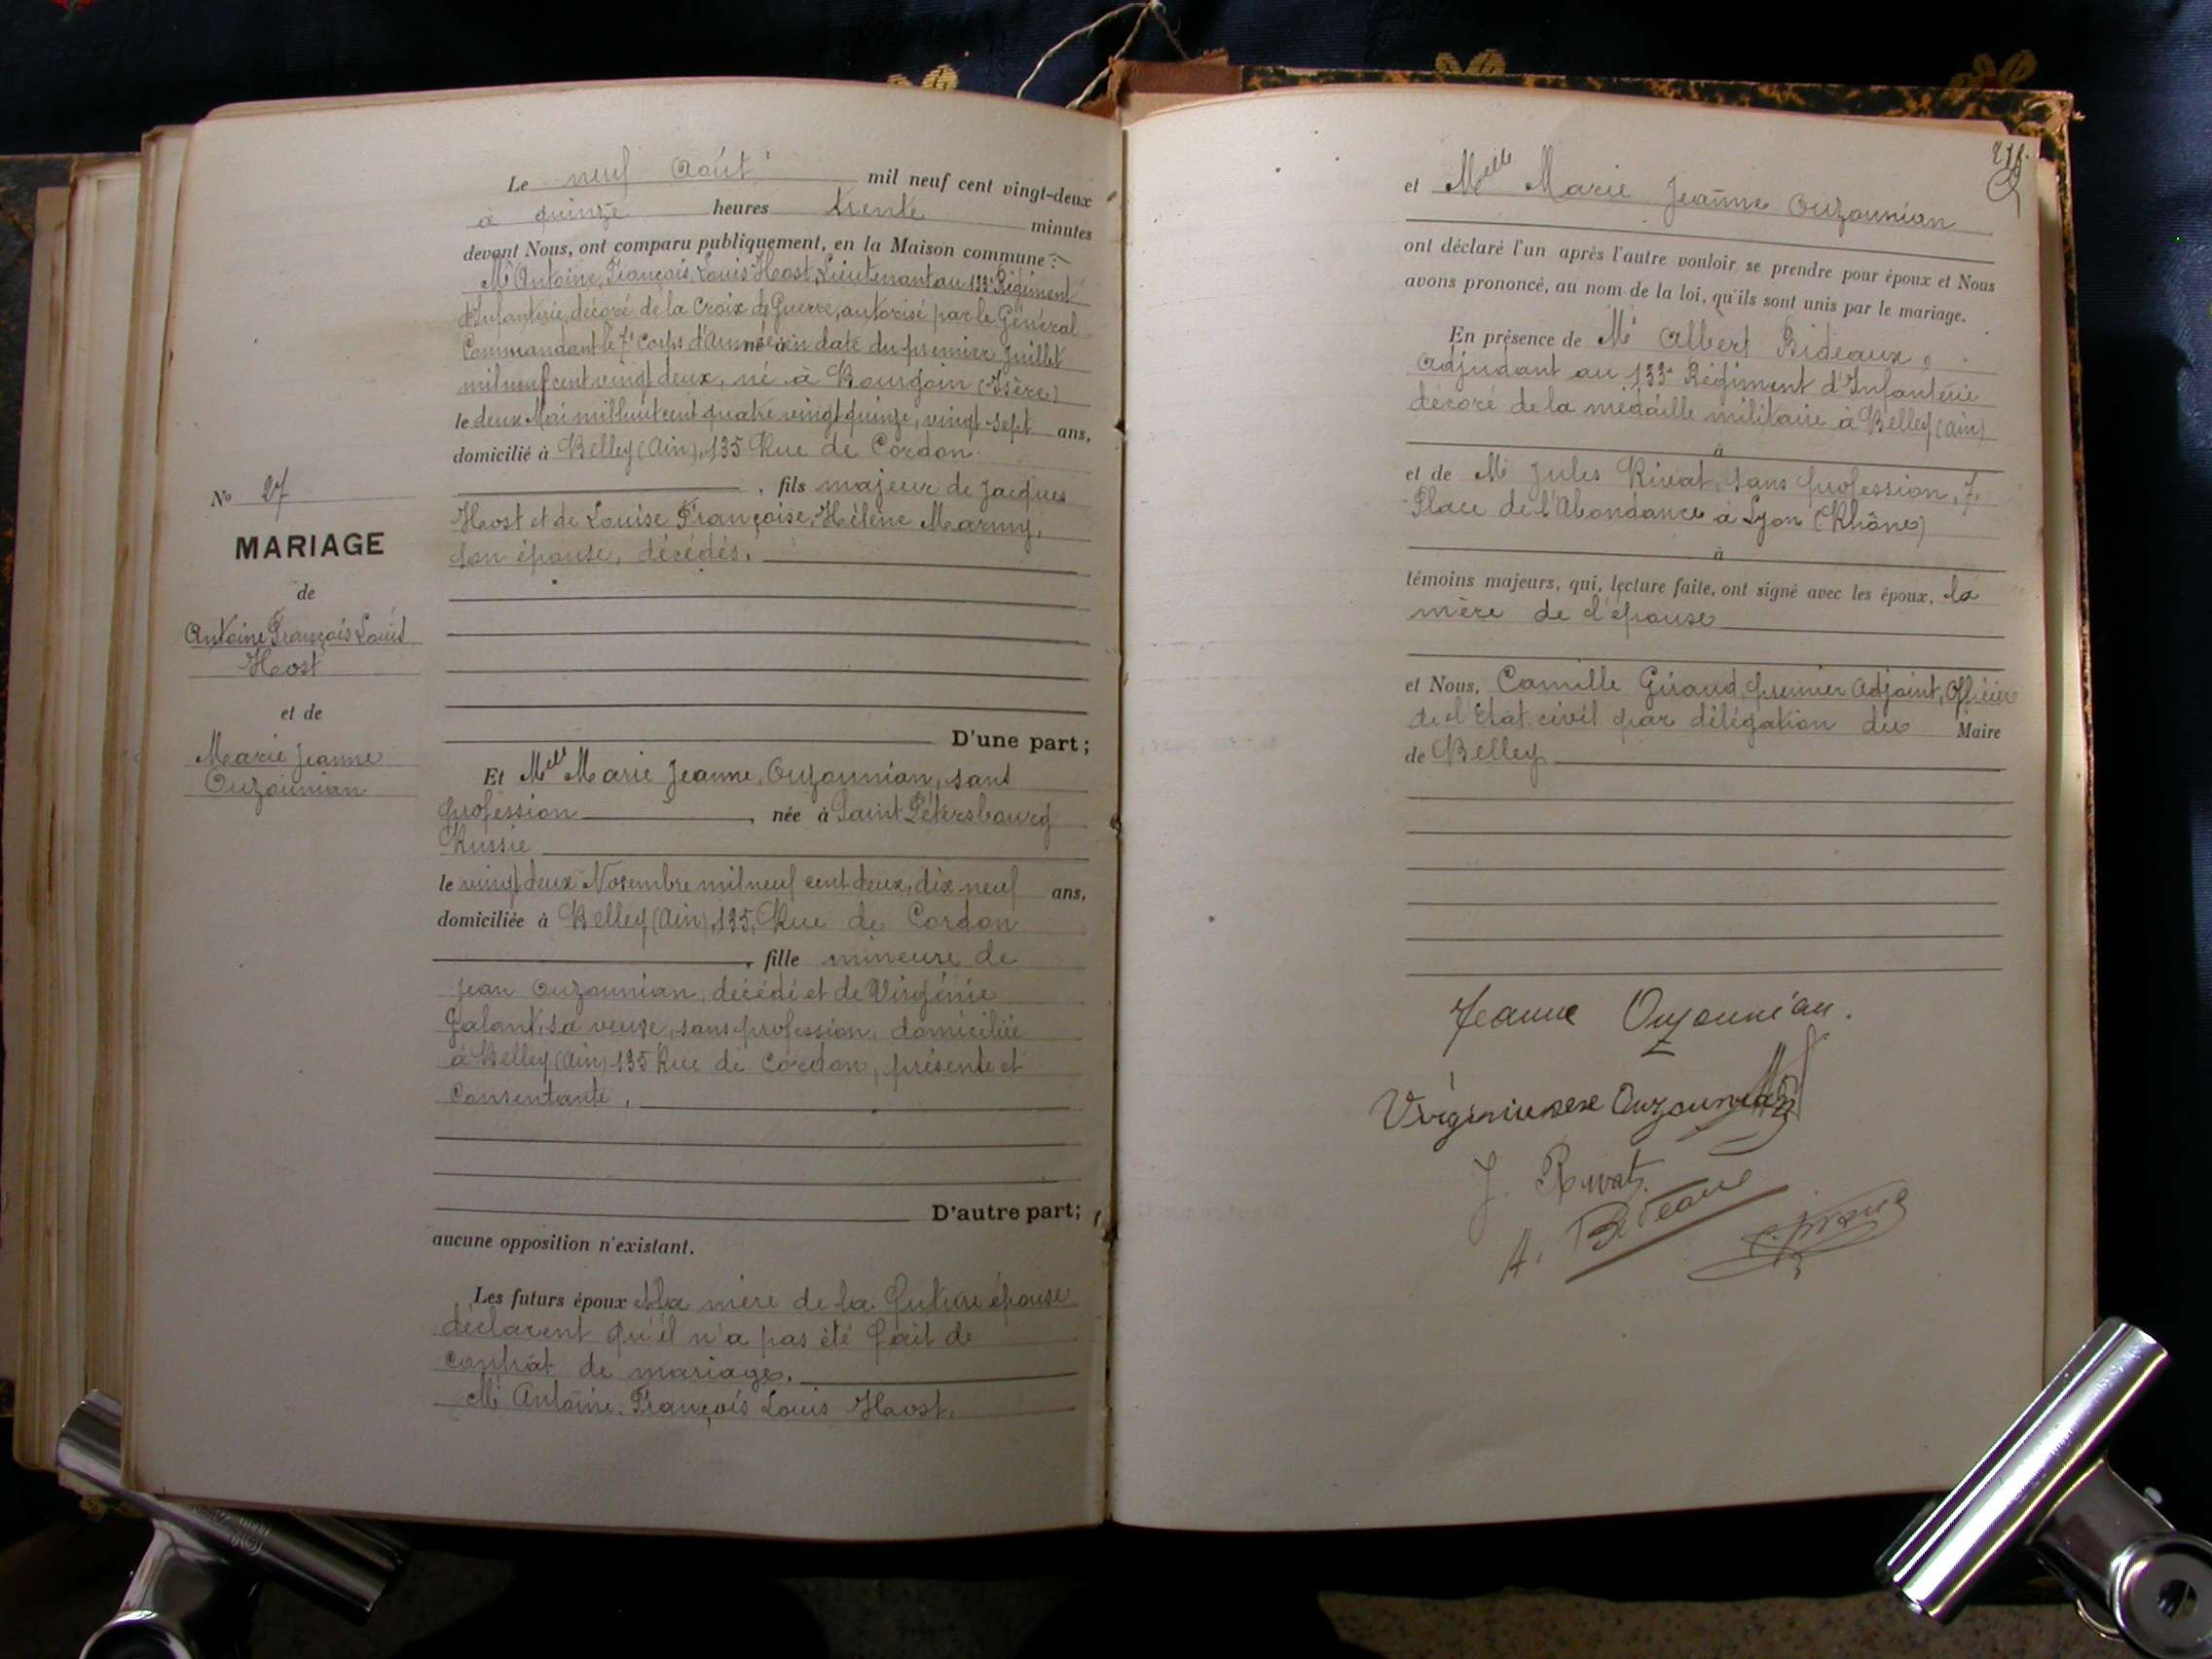 Le neuf Août mil neuf cent vingt-deux
à quinze heures trente minutes
devant Nous, ont comparu publiquement, en la Maison commune :
Mr Antoine, François, Louis Host, Lieutenant au 133e Régiment
d'Infanterie, décoré de la Croix de Guerre, autorisé par le Général
Commandant le 7e Corps d'Armée en date du premier Juillet
mil neuf cent vingt deux, né à Bourgoin (Isère)
le deux Mai mil huit cent quatre vingt quinze, vingt sept ans,
domicilié à Belley (Ain), 135 Rue de Cordon
, fils majeur de Jacques
Host et de Louise Françoise, Hélène
son épouse, décédés.
No 27
MARIAGE
de
Antoine François Louis
Host
et de
Marie Jeanne
Ouzounian
D'une part ;
Et Melle Marie Jeanne, Ouzounian, sans
profession , née à Saint Pétersbourg
Russie
le vingt deux Novembre mil neuf cent deux, dix neuf ans,
domiciliée à Belley (Ain), 135, Rue de Cordon
, fille mineure de
Jean Ouzounian, décédé et de Virginie
Galant, sa veuve, sans profession, domiciliée
à Belley (Ain) 135 Rue de Cordon, présente et
consentante.
D'autre part ;
aucune opposition n'existant.
Les futurs époux et la mère de la future épouse
déclarent qu'il n'a pas été fait de
contrat de mariage.
Mr Antoine, François Louis Host.
et Melle Marie Jeanne Ouzounian
ont déclaré l'un après l'autre vouloir se prendre pour époux et Nous
avons prononcé, au nom de la loi, qu'ils sont unis par le mariage.
En présence de Mr Albert Bideaux,
Adjudant au 133e Régiment d'Infanterie
décoré de la médaille militaire à Belley (Ain)
à
et de Mr Jules Rivat, sans profession, 7,
Place de l'Abondance à Lyon (Rhône)
à
témoins majeurs, qui, lecture faite, ont signé avec les époux, la
mère de l'épouse
et Nous, Camille Giraud, premier Adjoint, Officier
de l'Etat civil par délégation du Maire
de Belley
Jeanne Ouzounian.
Ouzounian
J. Rivat.
A. Bideaux